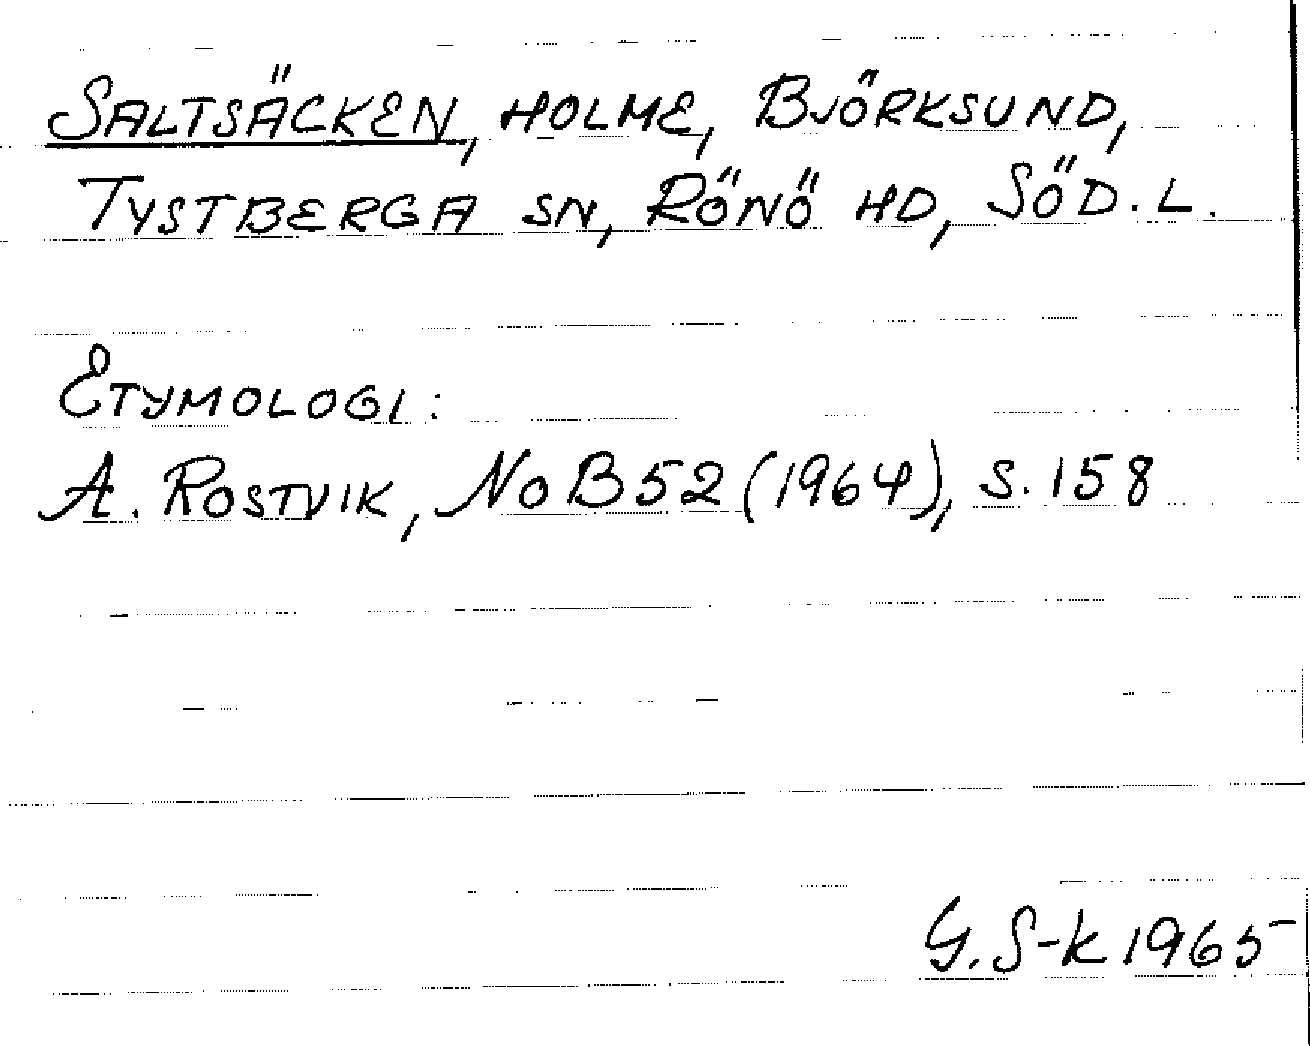 SALTSÄCKEN, HOLME, BJÖRKSUND,
TYSTBERGA SN, RÖNÖ HD, SÖD. L.
ETYMOLOGI:
A. ROSTVIK, NoB 52 (1964), s. 158
G. S-k 1965